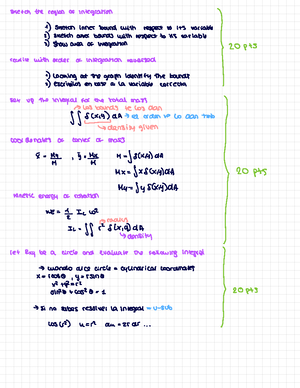 Sketch the region to integration
1) Sketch inner bound with respect to its variable
2) Sketch outer bounds with respect to its variable
3) Show area of integration
20 pts
Rewrite with order of integration reversed
1) Looking at the graph identify the bounds
2) Escribirlo en esa la variable correcta
Set up the integral for the total mass
los bounds te los dan
∬ δ(x,y) dA → el orden te lo dan tmb
↳ density given
Coordinates of center of mass
x̄ = My/M , ȳ = Mx/M
M = ∫∫ δ(x,y) dA
Mx = ∫ x δ(x,y) dA
My = ∫ y δ(x,y) dA
20 pts
Kinetic energy of rotation
KE = 1/2 I_L ω²
radius
I_L = ∬ r² δ(x,y) dA
↳ density
Let R be a circle and evaluate the following integral
→ cuando dice circle = cylindrical coordinates
x = r cos θ , y = r sin θ
x² + y² = r²
sin² θ + cos² θ = 1
20 pts
→ Si no sabes resolver la integral = u-sub
cos(r²) u = r² du = 2r dr ...